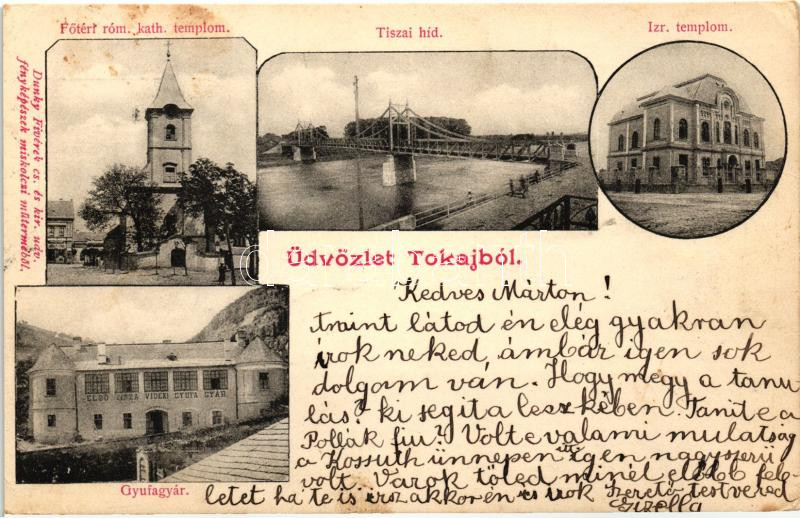 Főtéri róm. kath. templom.
Tiszai híd.
Izr. templom.
Dunky Fivérek cs. és kir. udv.
fényképészek miskolczi műterméből.
Üdvözlet Tokajból.
ELSŐ TISZA VIDÉKI GYUFA GYÁR
Gyufagyár.
Kedves Márton!
Amint látod én elég gyakran
irok neked, ámbár igen sok
dolgom ván. Hogy megy a tanu
lás? ki segita leszkében. Tanit e a
Pollák fiu? Volt e valami mulatság
a Kossuth ünnepen itt igen nagyszerü
volt. Várok tőled minél előbb fele
letet ha te is irsz akkor én is irok szerető testvered
Gizella